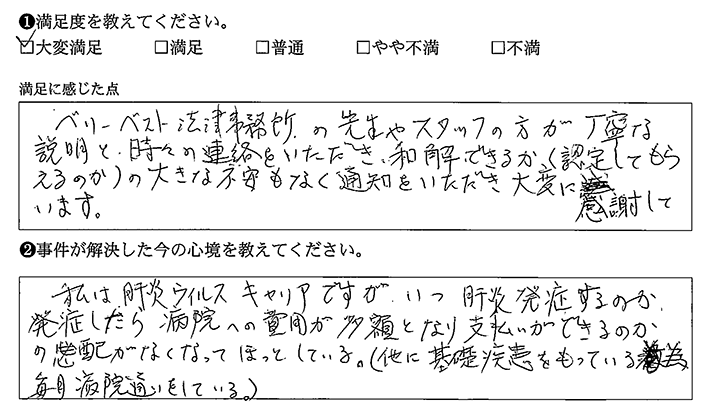 ❶満足度を教えてください。
☑大変満足 □満足 □普通 □やや不満 □不満
満足に感じた点
ベリーベスト法律事務所、の先生やスタッフの方が丁寧な
説明と、時々の連絡をいただき、和解できるか（認定してもら
えるのか）の大きな不安もなく通知をいただき大変に
感謝して
います。
❷事件が解決した今の心境を教えてください。
私は肝炎ウィルスキャリアですが、いつ肝炎発症するのか、
発症したら病院への費用が多額となり支払いができるのか
の心配がなくなってほっとしている。（他に基礎疾患をもっている為
毎月病院通いをしている。）